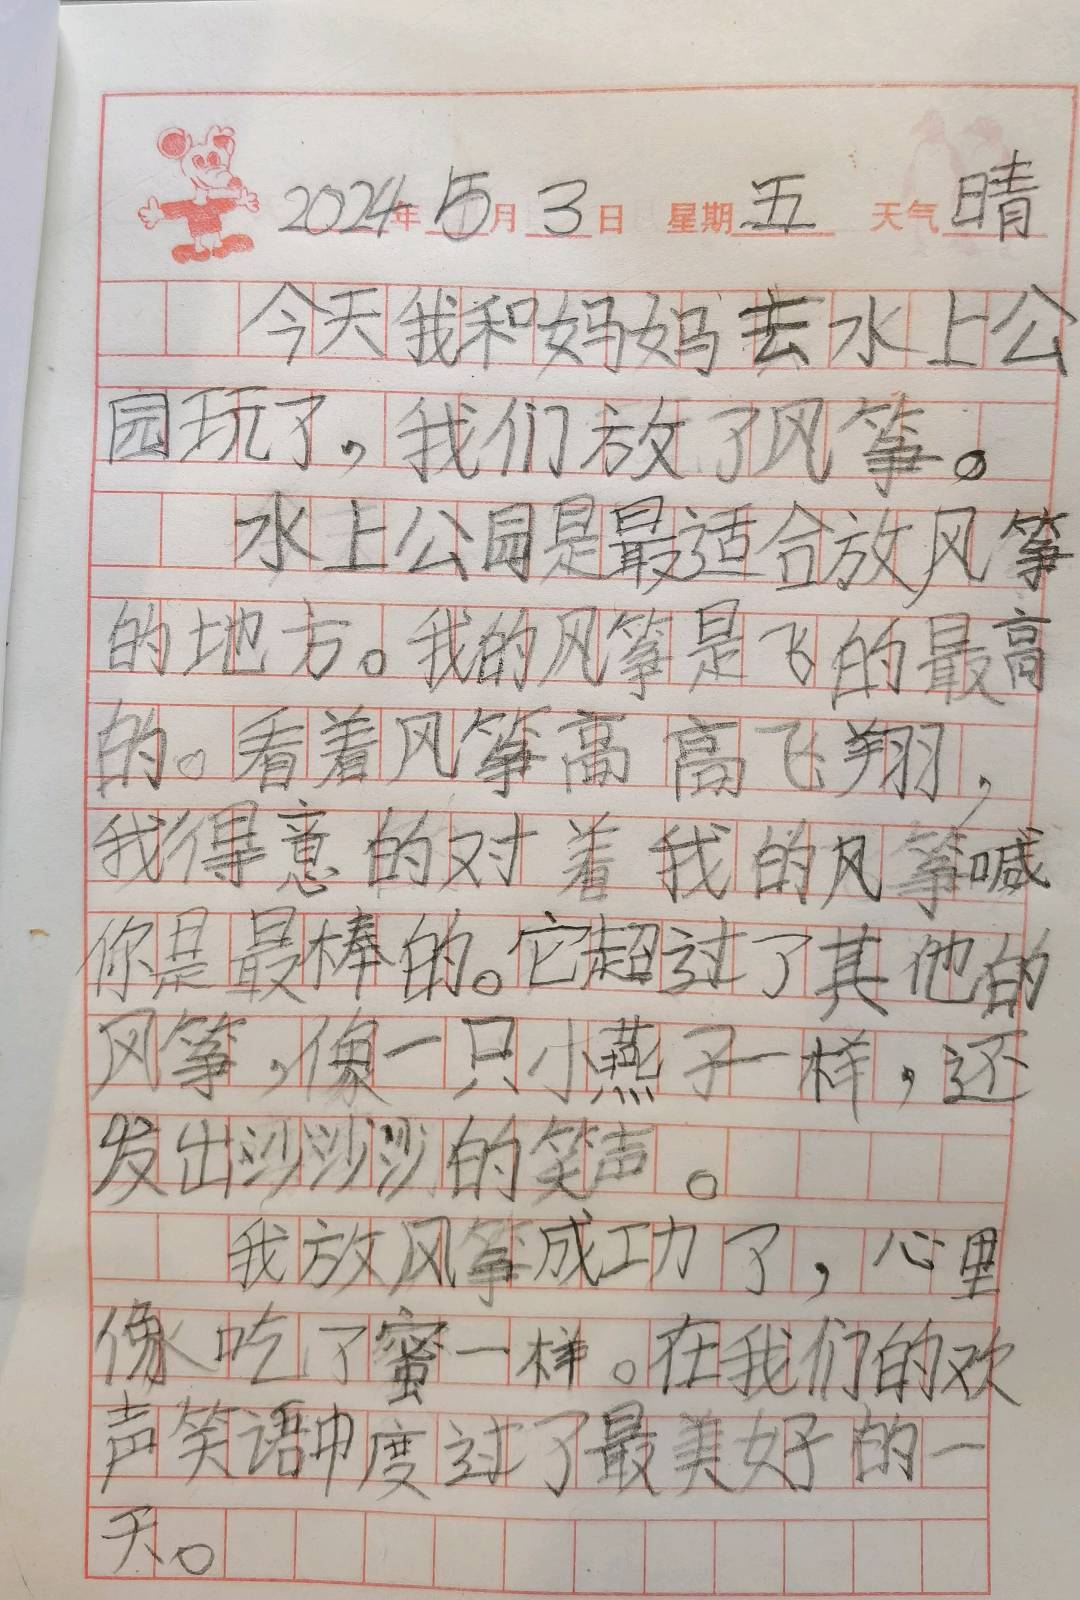 2024年5月3日 星期五 天气晴
今天我和妈妈去水上公
园玩了，我们放了风筝。
水上公园是最适合放风筝
的地方。我的风筝是飞的最高
的。看着风筝高高飞翔，
我得意的对着我的风筝喊
你是最棒的。它超过了其他的
风筝，像一只小燕子一样，还
发出沙沙沙的笑声。
我放风筝成功了，心里
像吃了蜜一样。在我们的欢
声笑语中度过了最美好的一
天。